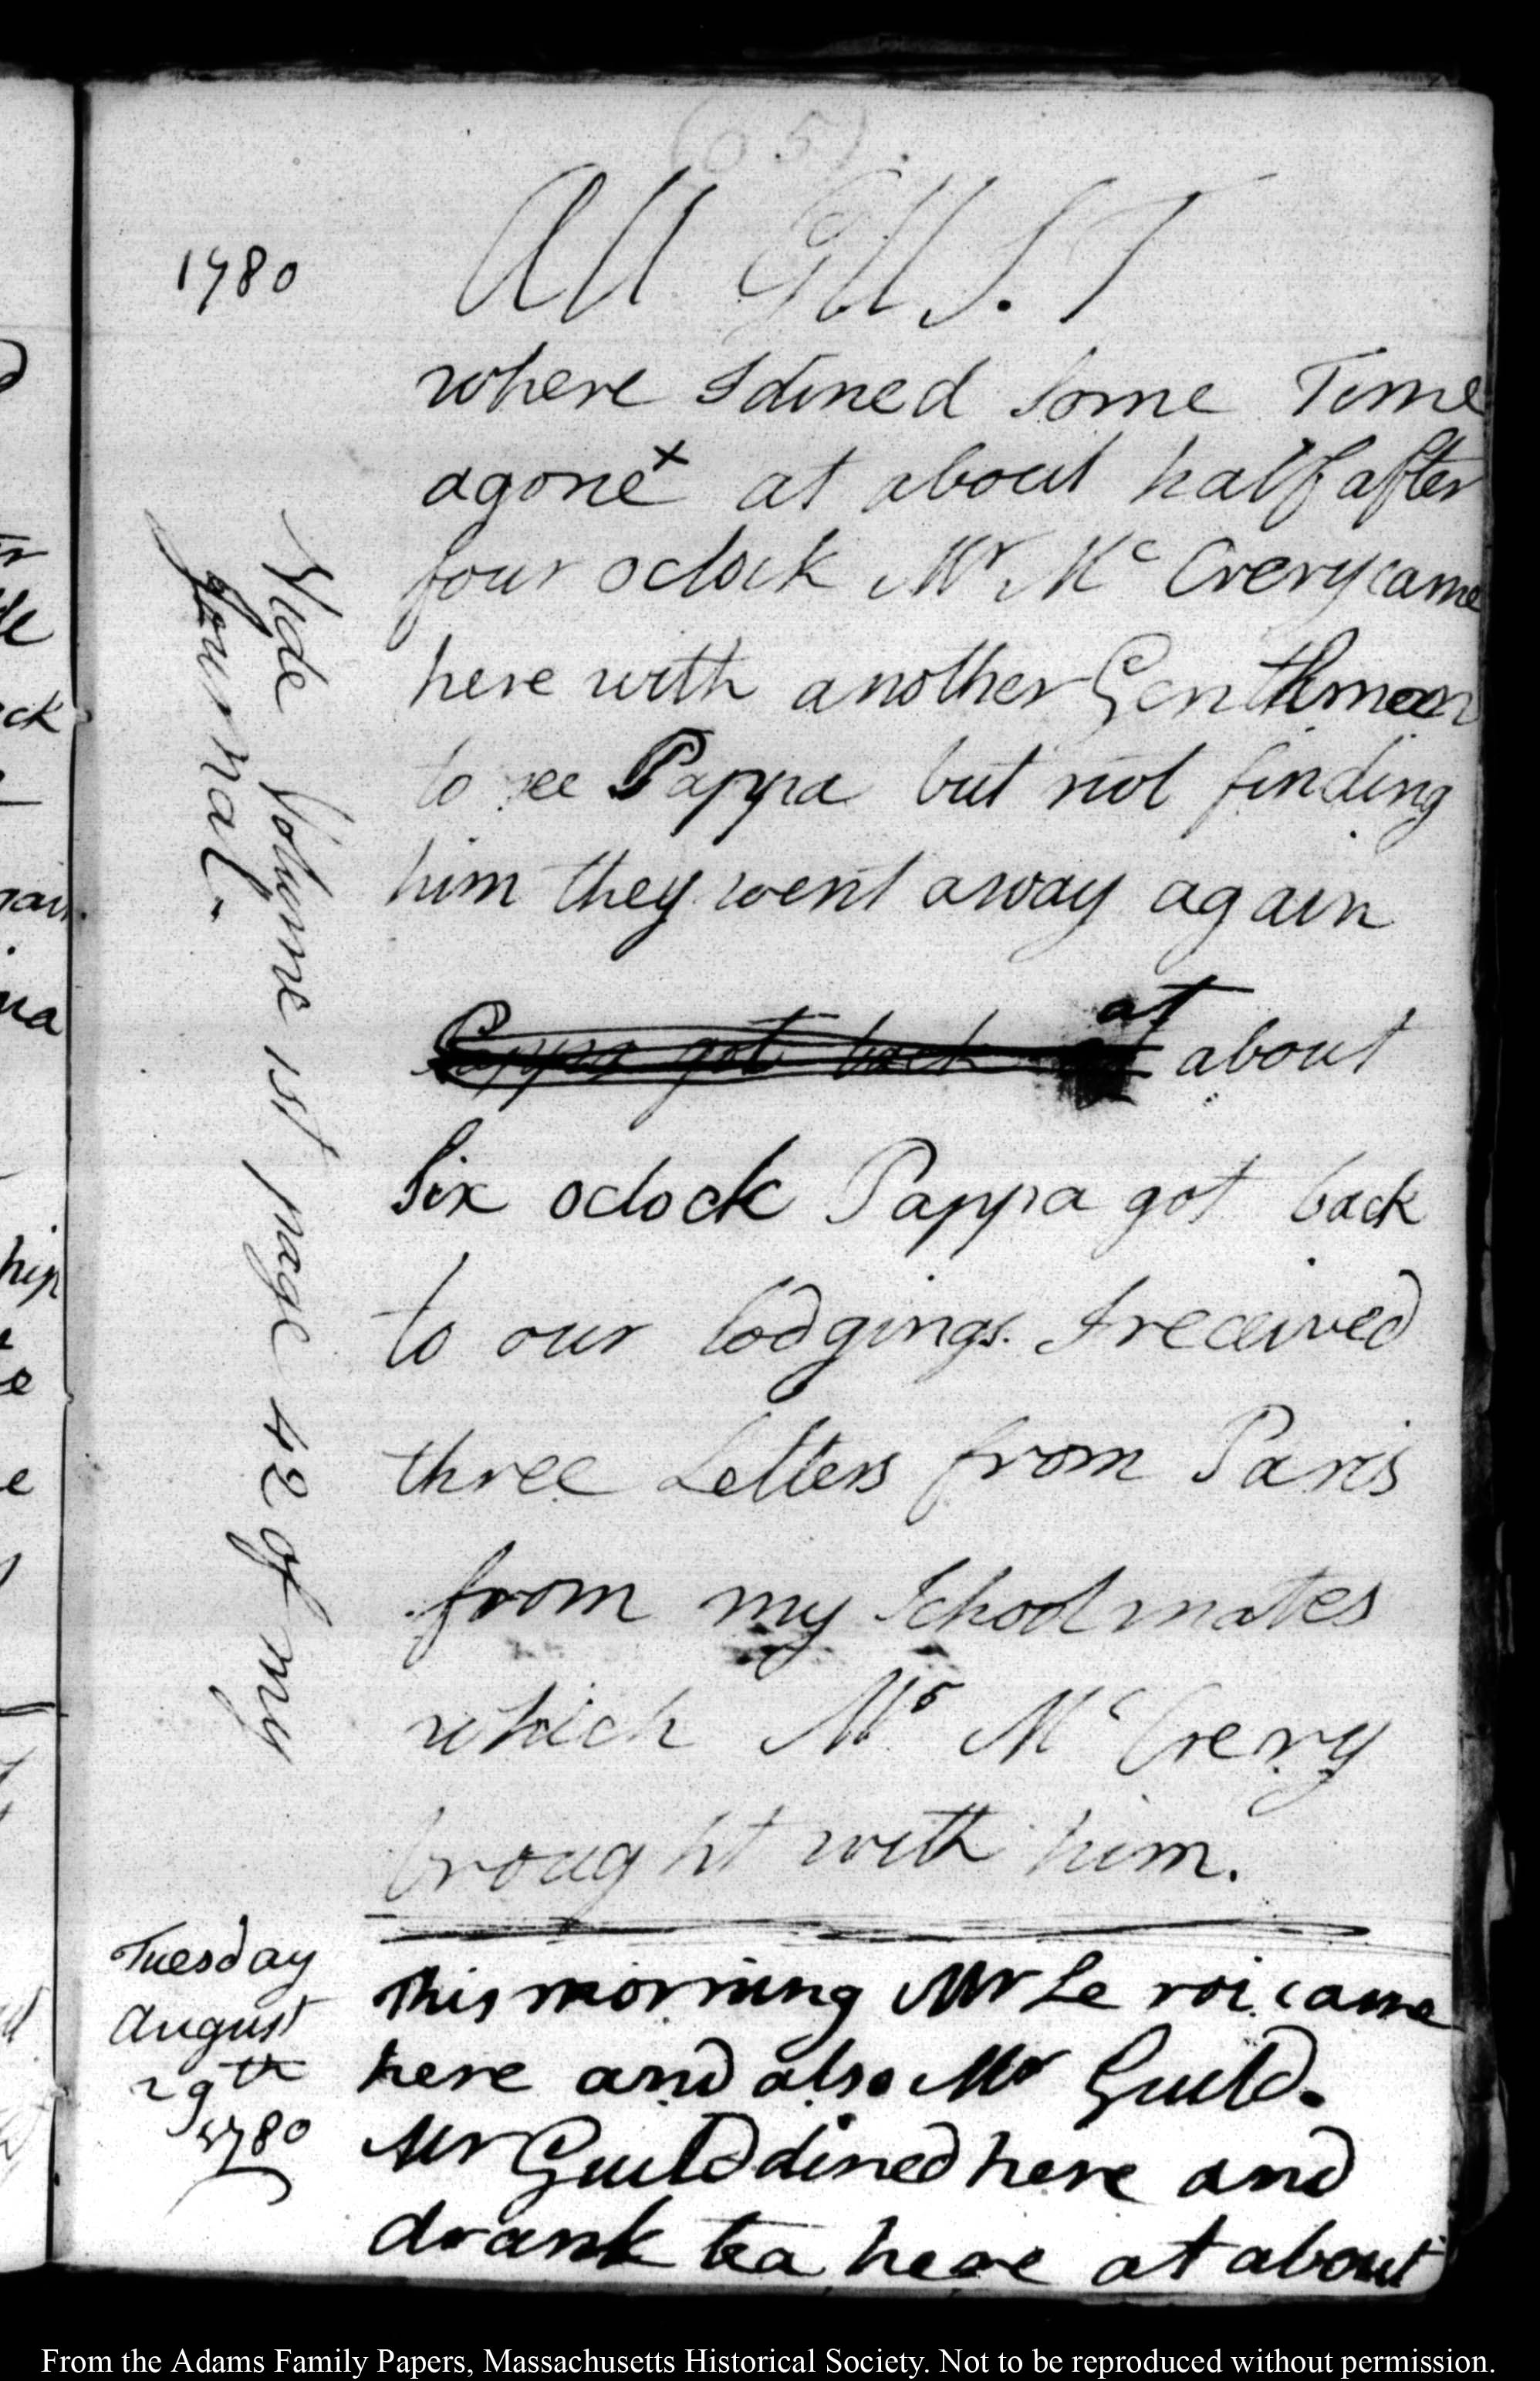 (65)
1780
AUGUS.T
where I dined some Time
agone x at about half after
four oclock Mr. Mc Crery came
here with another Gentleman
to see Pappa but not finding
him they went away again
Pappa got back at about
Six oclock Pappa got back
to our lodgings. I received
three Letters from Paris
from my Schoolmates
which Mr Mc Crery
brought with him.
x Vide Volume 1st page 42 of my
Journal.
Tuesday
August
29th
1780
This morning Mr Le roi came
here and also Mr Guild.
Mr Guild dined here and
drank tea here at about
From the Adams Family Papers, Massachusetts Historical Society. Not to be reproduced without permission.